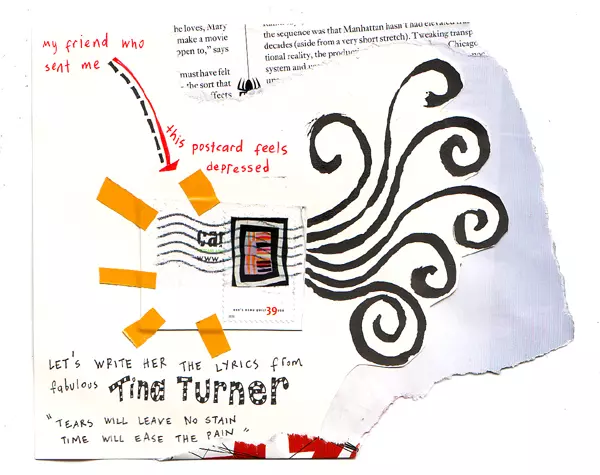 he loves, Mary
make a movie
open to," says
must have felt
the sort that
ffects
the sequence was that Manhattan hasn't had elevated
decades (aside from a very short stretch). Tweaking transp
tional reality, the produc
Chicago
system and
my friend who
sent me
this postcard feels
depressed
car
www.
39
LET'S WRITE HER THE LYRICS from
fabulous Tina Turner
"TEARS WILL LEAVE NO STAIN
TIME WILL EASE THE PAIN"